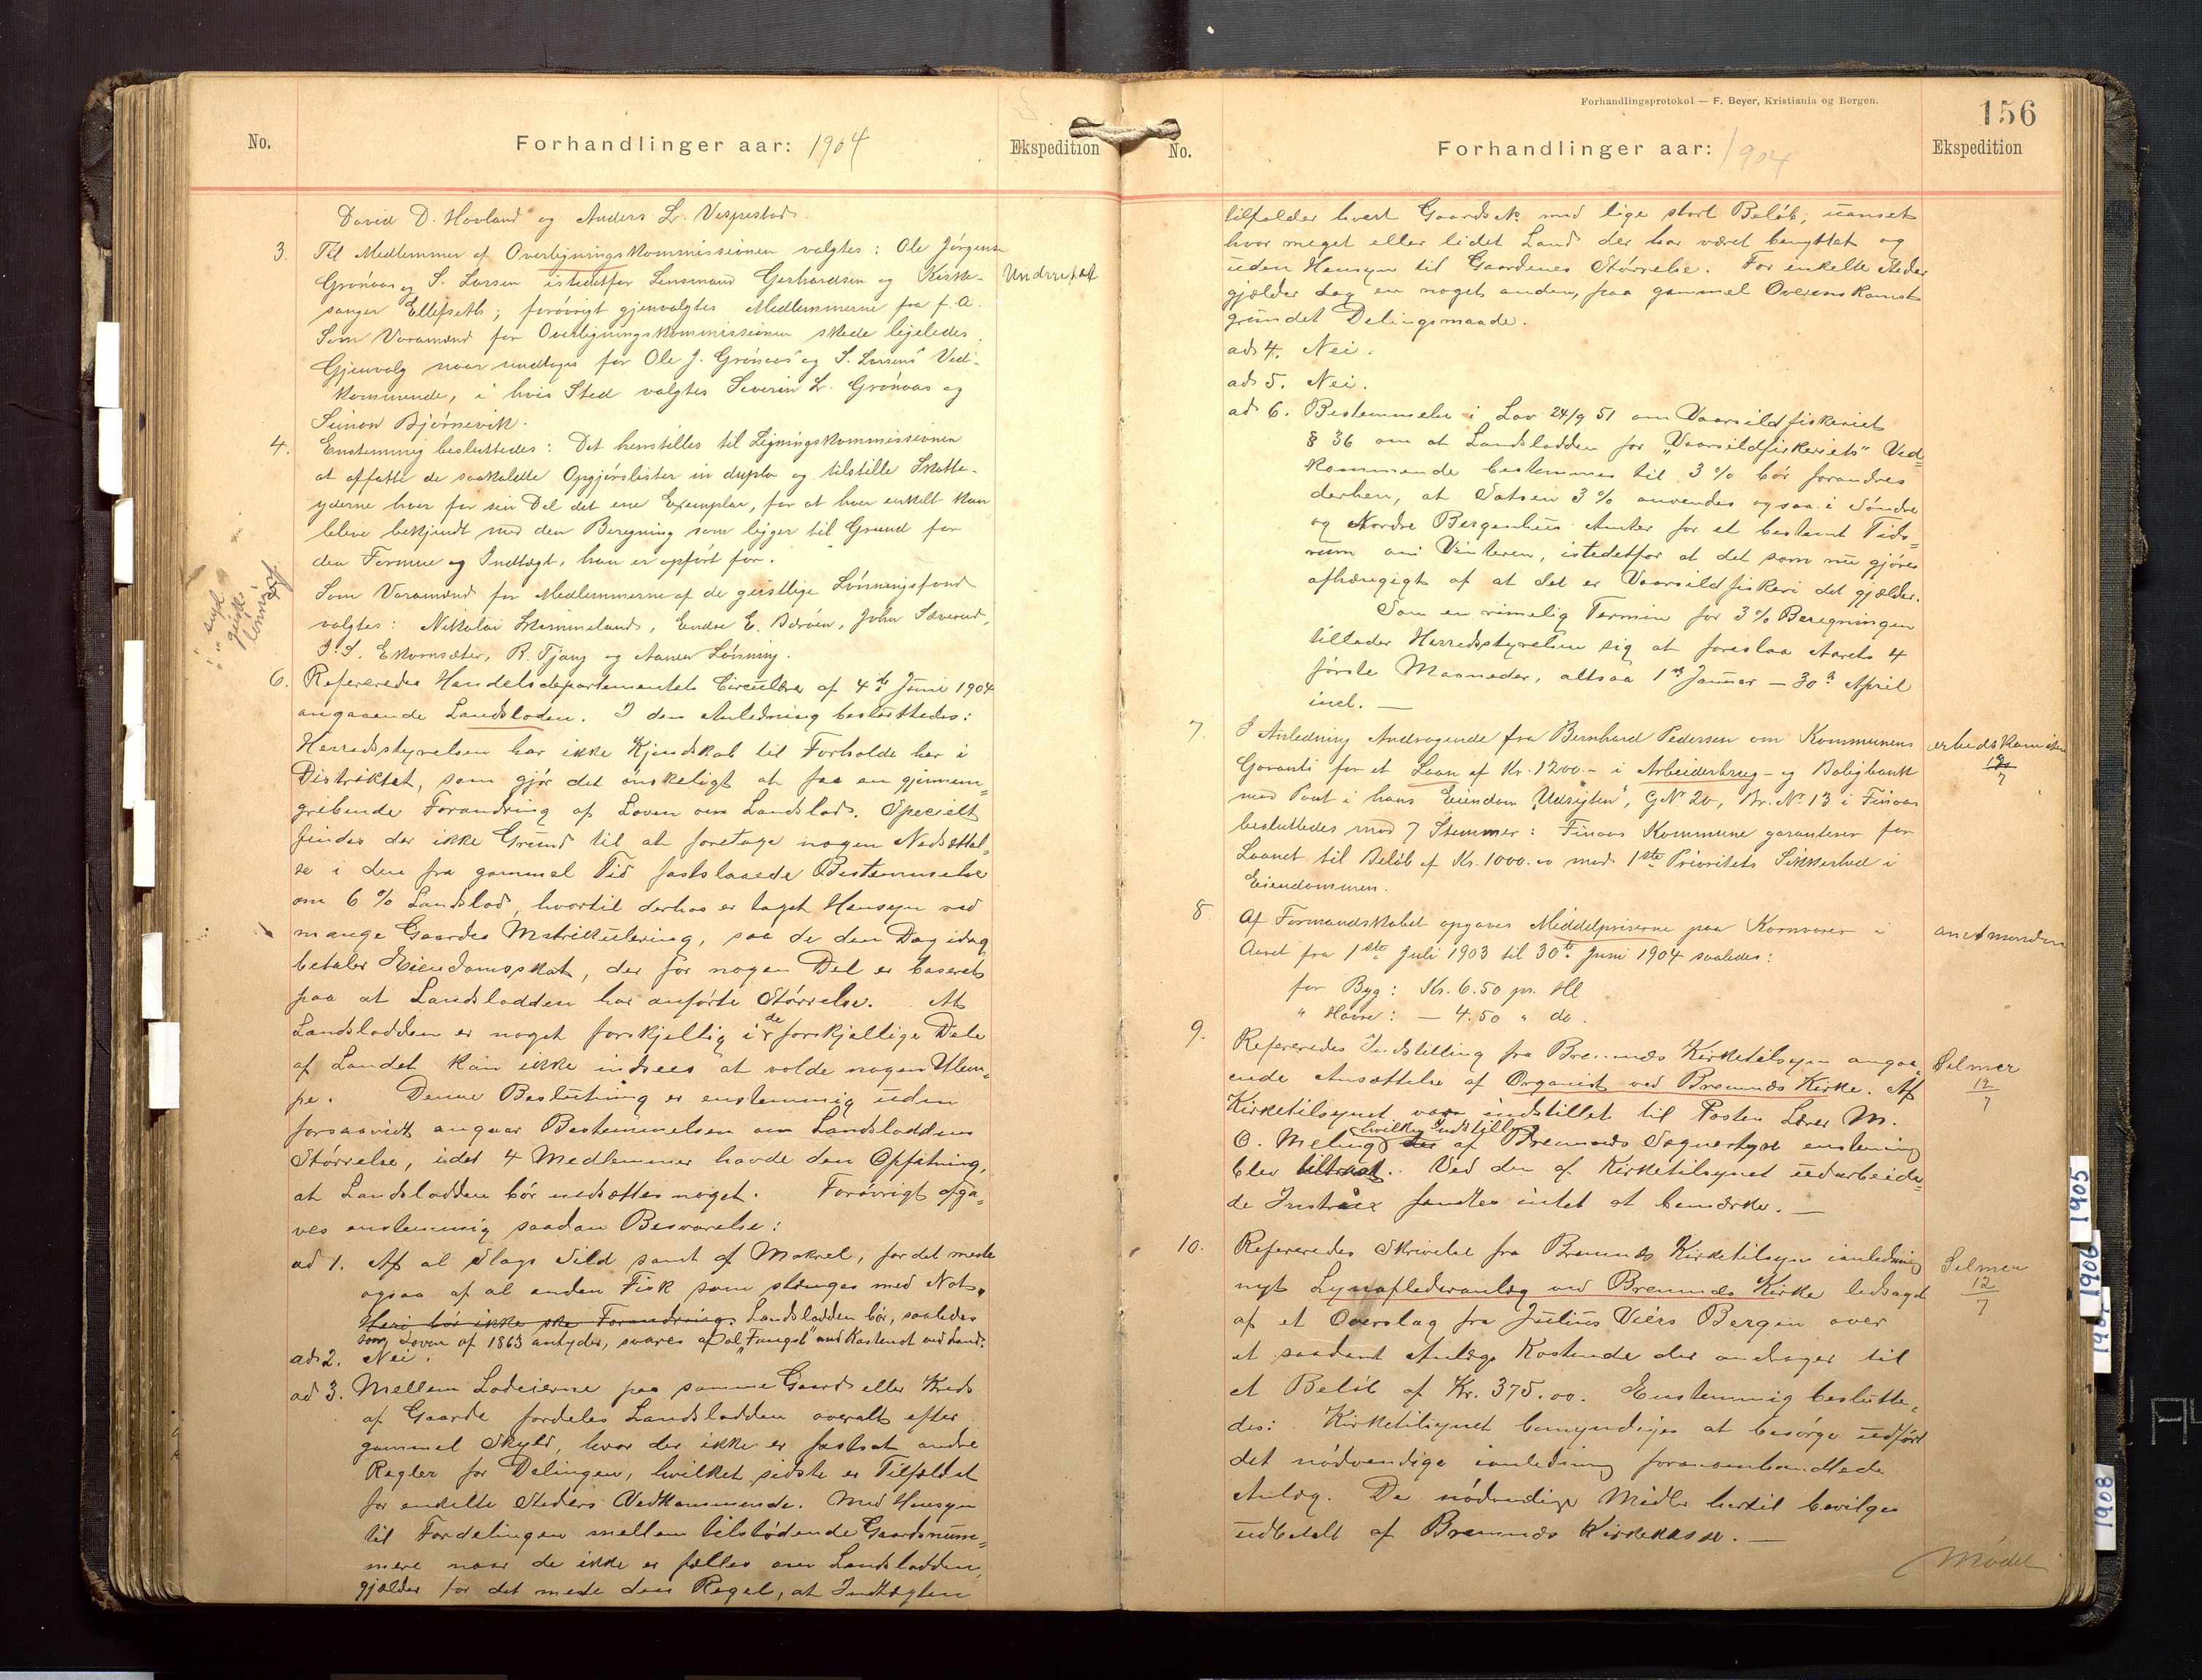 No.
Forhandlinger aar: 1904
Ekspedition
David D. Hovland og Anders L. Vespestad.
3. Til Medlemmer af Overligningskommissionen valgtes: Ole Jørgensen
Grønaas og S. Larsen istedetfor Lensmand Gerhardsen og Kirke-
sanger Ellefseth; forøvrigt gjenvalgtes Medlemmerne fra f. A.
Som Varamænd for Overligningskommissionen skede ligeledes
Gjenvalg naar undtages for Ole J. Grønaas' og S. Larsens Ved-
kommende, i hvis Sted valgtes Severin L. Grønaas og
Simon Bjørnevik.
Underrettet
4. Enstemmig besluttedes: Det henstilles til Ligningskommissionen
at affatte de saakaldte Opgjørslister in duplo og tilstille Skatte-
yderne hver for sin Del det ene Exemplar, for at hver enkelt kan
bleve bekjendt med den Beregning som ligger til Grund for
den Formue og Indtægt, han er opført for.
Som Varamænd for Medlemmerne af de geistlige Lønningsfond
valgtes: Nikolai Skimmeland, Endre E. Børøen, John Sæverud,
S. S. Ekornsæter, R. Tjong og Aamen Lønning.
6. Refereredes Handelsdepartementets Circulære af 4de Juni 1904
angaaende Landsloden. I den Anledning besluttedes:
Herredsstyrelsen har ikke Kjendskab til Forholde her i
Distriktet, som gjør det ønskeligt at faa en gjennem-
gribende Forandring af Loven om Landslod. Specielt
findes der ikke Grund til at foretage nogen Nedsættel-
se i den fra gammel Tid fastslaaede Bestemmelse
om 6 % Landslod, hvortil derhos er taget Hensyn ved
mange Gaardes Matrikulering, saa de den Dag idag
betaler Eiendomsskat, der for nogen Del er baseret
paa at Landslodden har anførte Størrelse. At
Landslodden er noget forskjellig i de forskjellige Dele
af Landet kan ikke indsees at volde nogen Ulem-
pe. Denne Beslutning er enstemmig uden
forsaavidt angaar Bestemmelsen om Landsloddens
Størrelse, idet 4 Medlemmer havde den Opfatning,
at Landslodden bør nedsættes noget. Forøvrigt afga-
ves enstemmig saadan Besvarelse:
ad 1. Af al Slags Sild samt af Makrel, for det meste
ogsaa af al anden Fisk som stænges med Not.
Heri bør ikke ske Forandring. Landslodden bør, saaledes
som Loven af 1863 antyder, svares af al "Fangst" med Kastenot ved Land.
ad 2. Nei.
ad 3. Mellem Lodeierne paa samme Gaard eller Kreds
af Gaarde fordeles Landslodden overalt efter
gammel Skyld, hvor der ikke er fastsat andre
Regler for Delingen, hvilket sidste er Tilfældet
for enkelte Steders Vedkommende. Med Hensyn
til Fordelingen mellem tilstødende Gaardsnum-
mere naar de ikke er fælles om Landslodden,
gjælder for det meste den Regel, at Indtægten
Forhandlingsprotokol — F. Beyer, Kristiania og Bergen.
156
No.
Forhandlinger aar: 1904
Ekspedition
tilfalder hvert Gaards No med lige stort Beløb, uanset
hvor meget eller lidet Land der har været benyttet og
uden Hensyn til Gaardenes Størrelse. For enkelte Steder
gjælder dog en noget anden, paa gammel Overenskomst
grundet Delingsmaade.
ad 4. Nei.
ad 5. Nei.
ad 6. Bestemmelse i Lov 24/9 51 om Vaarsildfiskeriet
§ 36 om at Landslodden for "Vaarsildfiskeriets" Ved-
kommende bestemmes til 3 % bør forandres
derhen, at Satsen 3 % anvendes ogsaa i Søndre
og Nordre Bergenhus Amter for et bestemt Tids-
rum om Vinteren, istedetfor at det som nu gjøres
afhængigt af at det er Vaarsildfiskeri det gjælder.
Som en rimelig Termin for 3 % Beregningen
tillader Herredsstyrelsen sig at foreslaa Aarets 4
første Maaneder, altsaa 1ste Januar — 30te April
incl. —
7. I Anledning Andragende fra Bernhard Pedersen om Kommunens
Garanti for et Laan af Kr. 1200.- i Arbeiderbrug- og Boligbank
med Pant i hans Eiendom "Udsigten", G. No 20, Br. No 13 i Finaas
besluttedes med 7 Stemmer: Finaas Kommune garanterer for
Laanet til Beløb af Kr. 1000.00 mod 1ste Prioritets Sikkerhed i
Eiendommen.
12/7
8. Af Formandskabet opgaves Middelpriserne paa Kornvarer i
Aaret fra 1ste Juli 1903 til 30te Juni 1904 saaledes:
for Byg: Kr. 6.50 pr. Hl
" Havre: — 4.50 " do.
9. Refereredes Indstilling fra Bremnæs Kirketilsyn angaa-
ende Ansættelse af Organist ved Bremnæs Kirke. Af
Kirketilsynet var indstillet til Posten Lærer M.
O. Meling, hvilken Indstilling af Bremnæs Sognestyre enstemmig
blev tiltraadt. Ved den af Kirketilsynet udarbeide-
de Instrux fandtes intet at bemærke. —
Selmer
12/7
10. Refereredes Skrivelse fra Bremnæs Kirketilsyn i anledning
nyt Lynaflederanlæg ved Bremnæs Kirke ledsaget
af et Overslag fra Julius Viérs Bergen over
et saadant Anlægs Kostende der andrager til
et Beløb af Kr. 375.00. Enstemmig beslutte-
des: Kirketilsynet bemyndiges at besørge udført
det nødvendige i anledning foranomhandlede
Anlæg. De nødvendige Midler hertil bevilges
udbetalt af Bremnæs Kirkekasse. —
Selmer
12/7
Mødet
1905
1906
1908